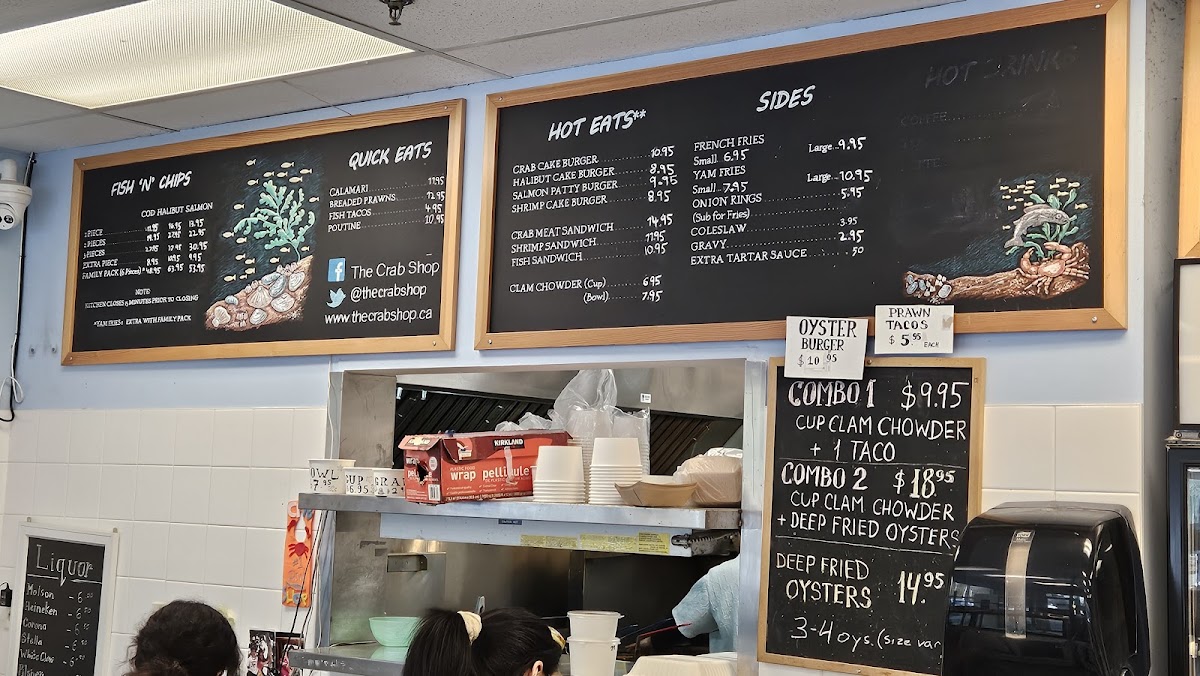 FISH 'N' CHIPS
COD HALIBUT SALMON
1 PIECE
2 PIECES
3 PIECES
EXTRA PIECE 8.95 10.95 9.95
FAMILY PACK (6 Pieces) * 48.95 63.95 53.95
NOTE:
KITCHEN CLOSES 15 MINUTES PRIOR TO CLOSING
*YAM FRIES: EXTRA WITH FAMILY PACK
QUICK EATS
CALAMARI
BREADED PRAWNS
FISH TACOS 4.95
POUTINE 10.95
The Crab Shop
@thecrabshop
www.thecrabshop.ca
HOT EATS**
CRAB CAKE BURGER 10.95
HALIBUT CAKE BURGER 8.95
SALMON PATTY BURGER 9.95
SHRIMP CAKE BURGER 8.95
CRAB MEAT SANDWICH 14.95
SHRIMP SANDWICH 11.95
FISH SANDWICH 10.95
CLAM CHOWDER (Cup) 6.95
(Bowl) 7.95
SIDES
FRENCH FRIES
Small 6.95 Large 9.95
YAM FRIES
Small 7.95 Large 10.95
ONION RINGS 5.95
(Sub for Fries)
COLESLAW 3.95
GRAVY 2.95
EXTRA TARTAR SAUCE .50
HOT DRINKS
COFFEE
OYSTER
BURGER
$10.95
PRAWN
TACOS
$5.95 EACH
COMBO 1 $9.95
CUP CLAM CHOWDER
+ 1 TACO
COMBO 2 $18.95
CUP CLAM CHOWDER
+ DEEP FRIED OYSTERS
DEEP FRIED
OYSTERS 14.95
3-4 oys. (size var
KIRKLAND
wrap pellicule
Liquor
Molson - 6.00
Heineken - 6.00
Corona - 6.50
Stella - 6.50